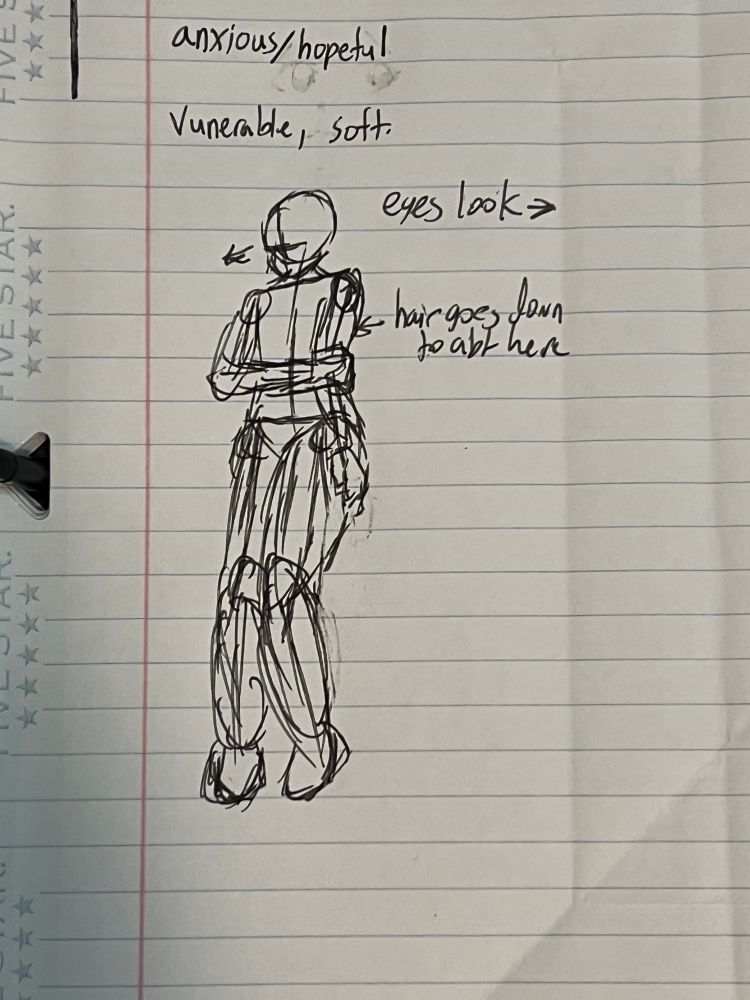 FIVE STAR.
FIVE STAR.
FIVE STAR.
anxious/hopeful
Vunerable, soft.
eyes look →
hair goes down
to abt here